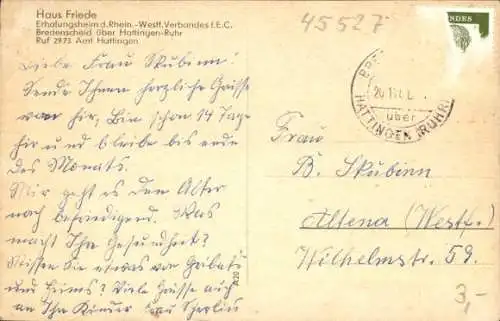 Haus Friede
Erholungsheim d. Rhein.-Westf. Verbandes f. E. C.
Bredenscheid über Hattingen-Ruhr
Ruf 2973 Amt Hattingen
45527
NDES
über
HATTINGEN (RUHR)
Liebe Frau Skubinn!
Sende Ihnen herzliche Grüsse
von hir, Bin schon 14 Tage
hir und bleibe bis ende
des Monats.
Mir geht es dem Alter
nach befridigend. Was
macht Ihre Gesundheit?
Wissen Sie etwas von
und Grüsse auch
an Ihre Kinder Frau
Frau
B. Skubinn
Altena (Westf.)
Wilhelmstr. 59.
3,-